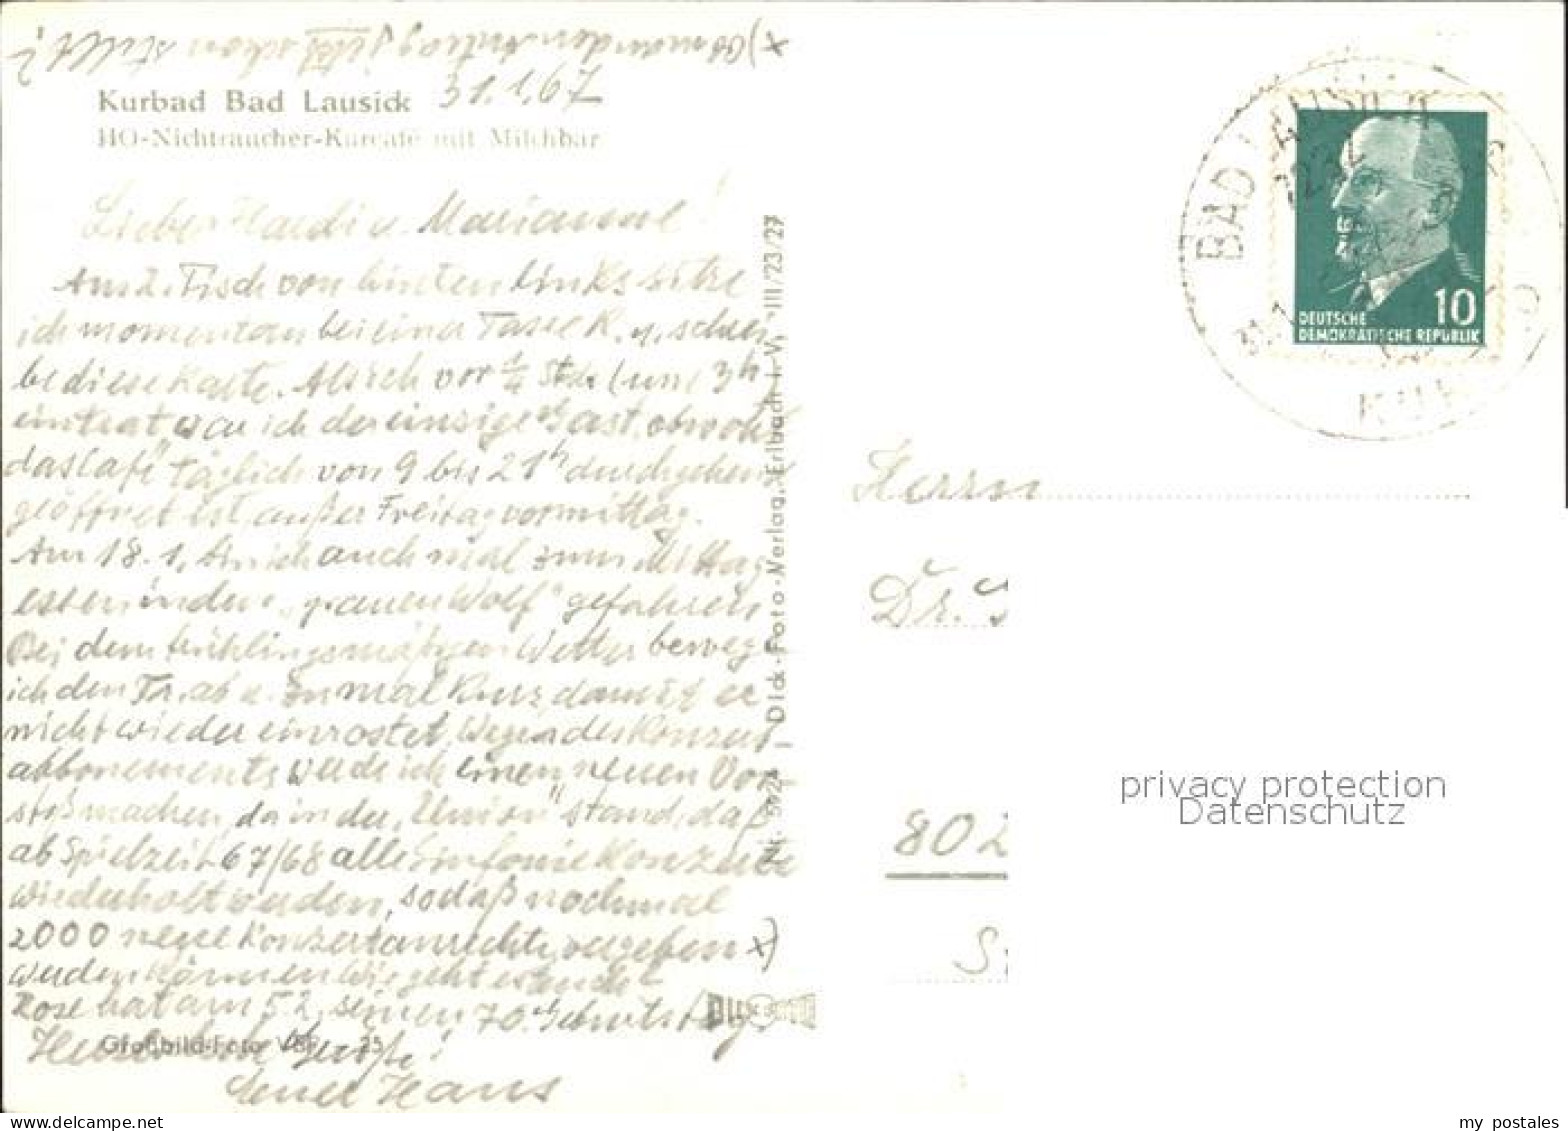 x) Ob man den Antrag jetzt schon stellt?
Kurbad Bad Lausick 31.1.67
HO-Nichtraucher-Kurcafé mit Milchbar
Lieber Hardi u. Marianne!
Am 2. Tisch von hinten links sitze
ich momentan bei einer Tasse K. u. schrei-
be diese Karte. Als ich vor 1/4 Stde (um 3h
eintrat war ich der einzige Gast, obwohl
das Café täglich von 9 bis 21h durchgehend
geöffnet ist, außer Freitagvormittag.
Am 18.1. bin ich auch mal zum Mittag-
essen in den "grauen Wolf" gefahren
Bei dem frühlingsmäßigen Wetter bewege
ich den Tr. ab u. zu mal kurz, damit er
nicht wieder einrostet. Wegen des Konzert-
abbonements werde ich einen neuen Vor-
stoß machen, da in der "Union" stand, daß
ab Spielzeit 67/68 alle Sinfoniekonzerte
wiederholt werden, sodaß nochmal
2000 neue Konzertanrechte vergeben x)
werden können. Wie geht es Euch?
Rose hat am 5.2. seinen 70. Geburtstag
Herzliche Grüße!
Euer Hans
Großbild-Foto VBP 25
Nr. 5624 Dick-Foto-Verlag, Erlbach i. V. III/23/27
BAD LAUSICK
7232
31.1.
10
DEUTSCHE
DEMOKRATISCHE REPUBLIK
Herrn
Dr.
802
privacy protection
Datenschutz
my postales